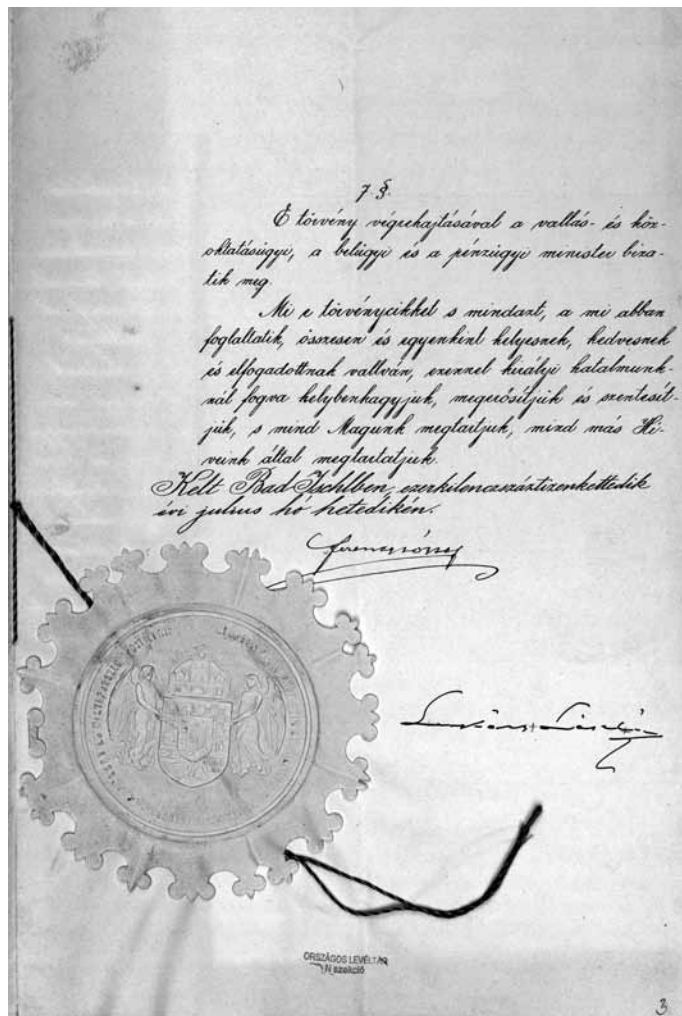 7. §.
E törvény végrehajtásával a vallás- és köz-
oktatásügyi, a belügyi és a pénzügyi minister biza-
tik meg.
Mi e törvénycikket s mindazt, a mi abban
foglaltatik, összesen és egyenkint helyesnek, kedvesnek
és elfogadottnak vallván, ezennel királyi hatalmunk-
nál fogva helybenhagyjuk, megerősítjük és szentesít-
jük, s mind Magunk megtartjuk, mind más Hí-
veink által megtartatjuk.
Kelt Bad Ischlben, ezerkilenczszáztizenkettedik
évi julius hó hetedikén.
Ferencz József
Lukács László
ORSZÁGOS LEVÉLTÁR
N szekció
3